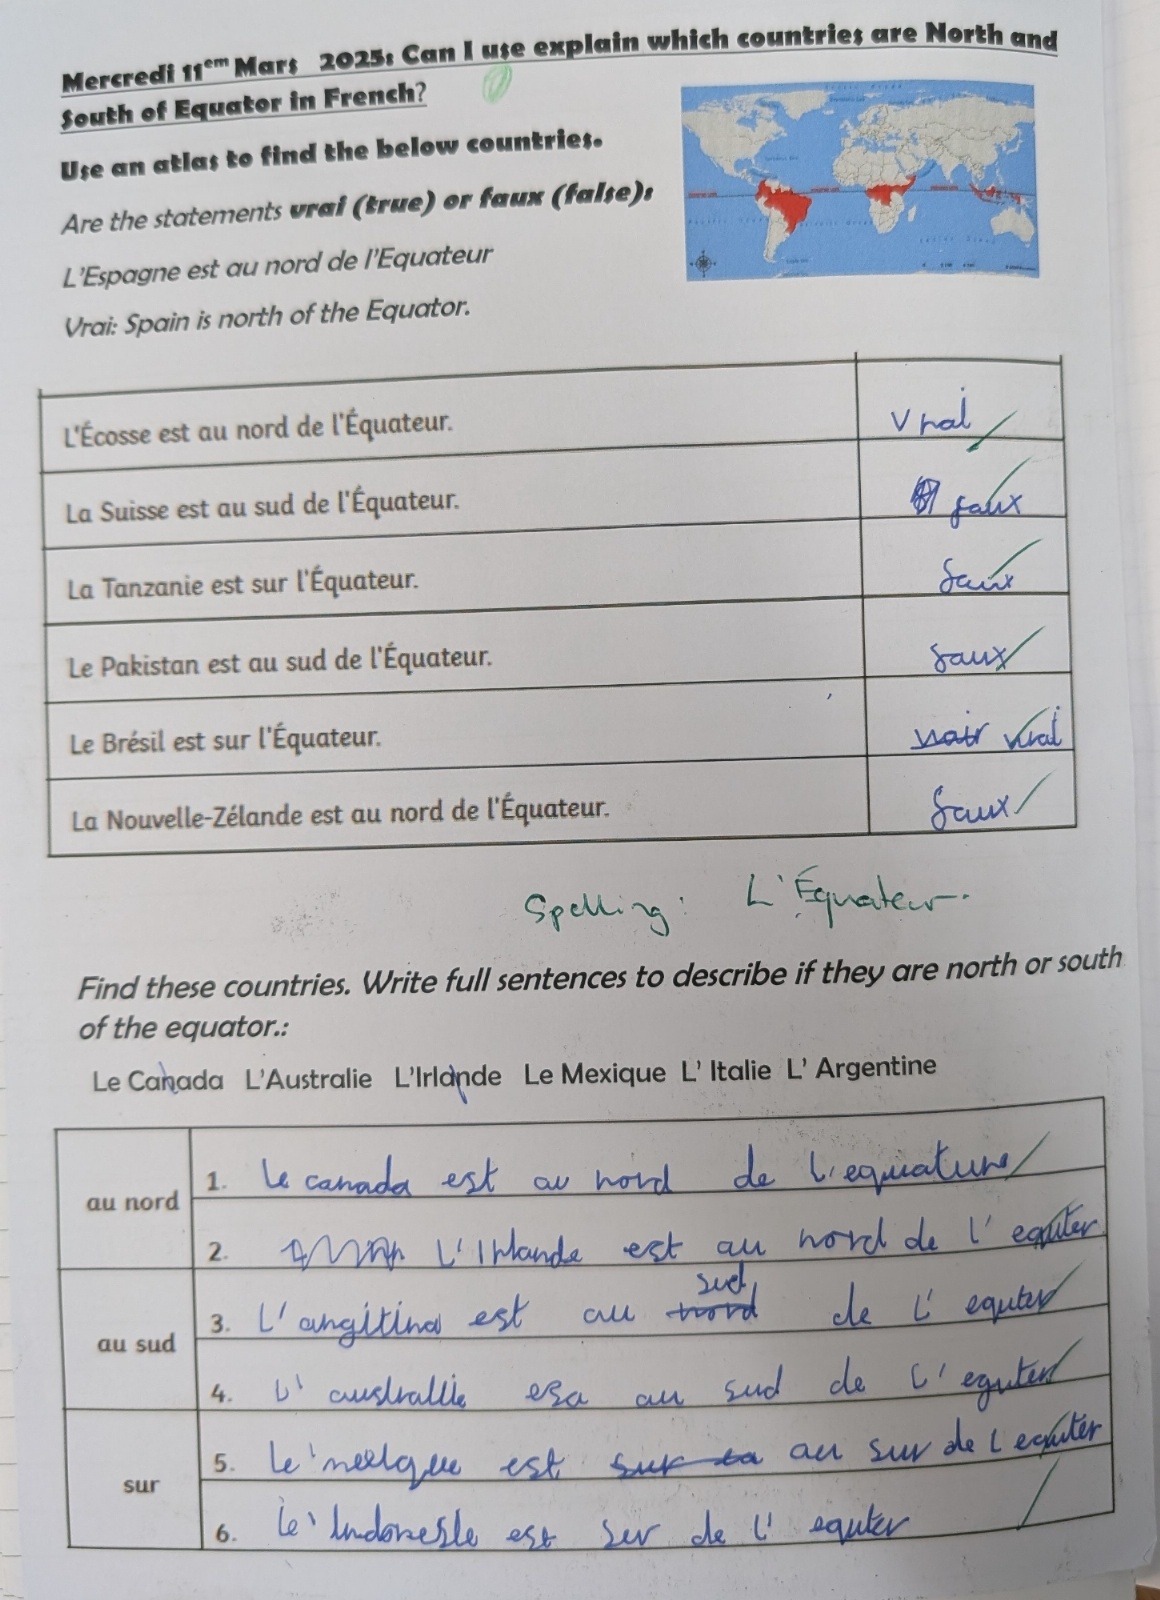 Mercredi 11em Mars 2025: Can I use explain which countries are North and
South of Equator in French?
Use an atlas to find the below countries.
Are the statements vrai (true) or faux (false):
L'Espagne est au nord de l'Equateur
Vrai: Spain is north of the Equator.
L'Écosse est au nord de l'Équateur. vrai
La Suisse est au sud de l'Équateur. faux
La Tanzanie est sur l'Équateur. faux
Le Pakistan est au sud de l'Équateur. faux
Le Brésil est sur l'Équateur. vrai
La Nouvelle-Zélande est au nord de l'Équateur. faux
Spelling: L'Équateur.
Find these countries. Write full sentences to describe if they are north or south
of the equator.:
Le Canada L'Australie L'Irlande Le Mexique L' Italie L' Argentine
au nord
1. Le canada est au nord de l'equature
2. L'Irlande est au nord de l' equter
au sud
3. L'angitina est au nord sud de l' equter
4. L' australlie esa au sud de l' equter
sur
5. Le est sur au sur de l equter
6. Le' Indonesie est ser de l' equter